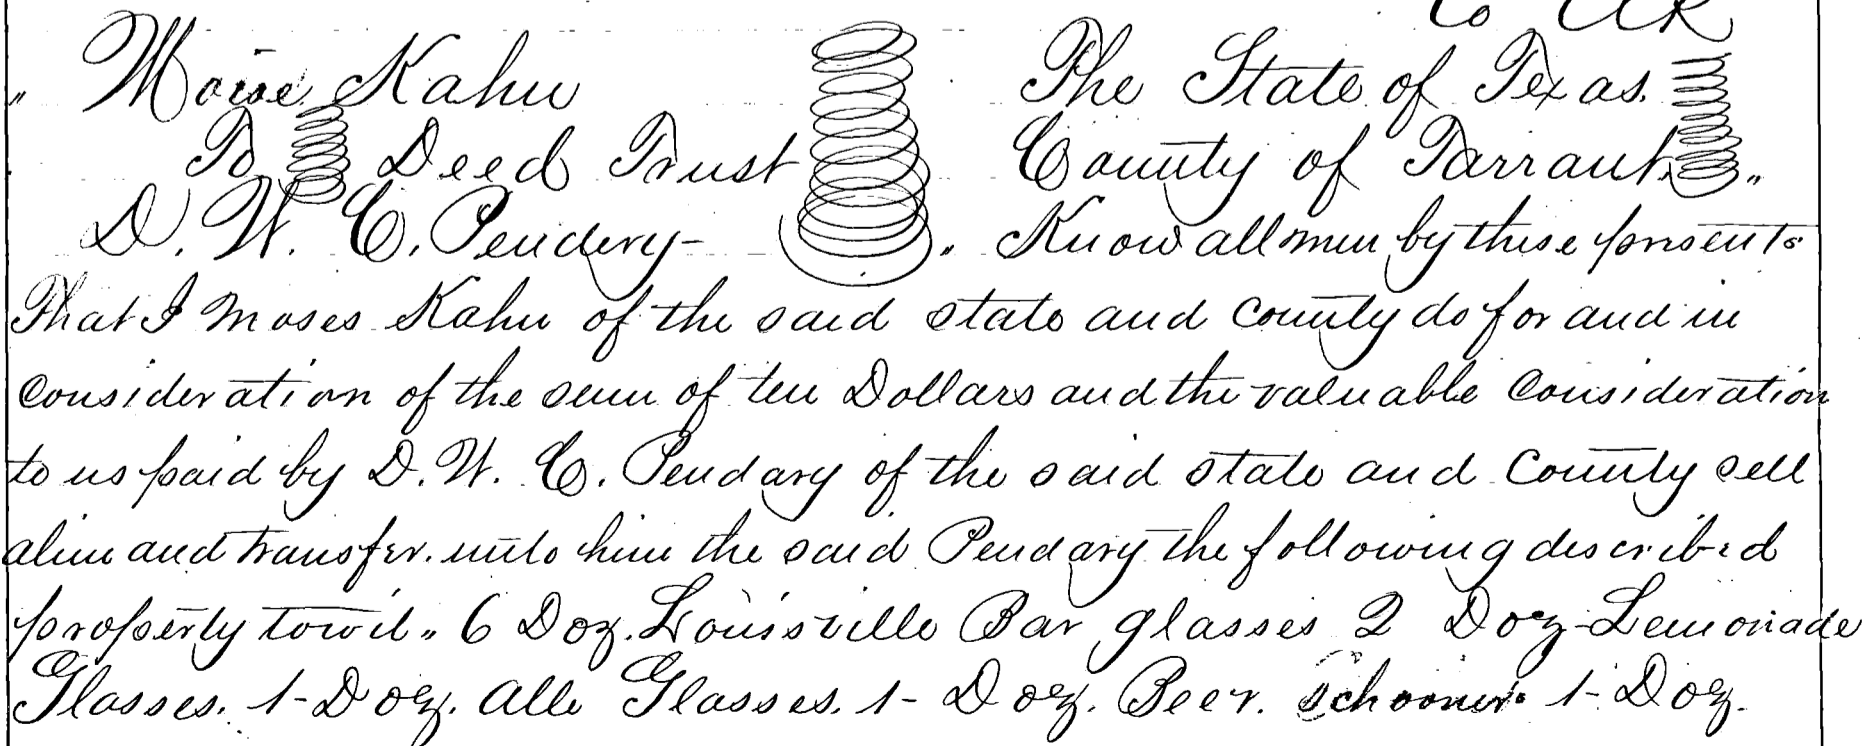 to CCR
" Moise Kahn The State of Texas.
To Deed Trust County of Tarrant. "
D. W. C. Pendery - . Know all men by these presents
That I Moses Kahn of the said state and County do for and in
Consideration of the sum of ten Dollars and the valuable Consideration
to us paid by D. W. C. Pendary of the said state and County sell
alien and transfer. unto him the said Pendary the following described
property towit " 6 Doz. Louisville Bar glasses 2 Doz - Lemonade
Glasses. 1 - Doz. Alle Glasses. 1 - Doz. Beer. Schooner 1 - Doz.